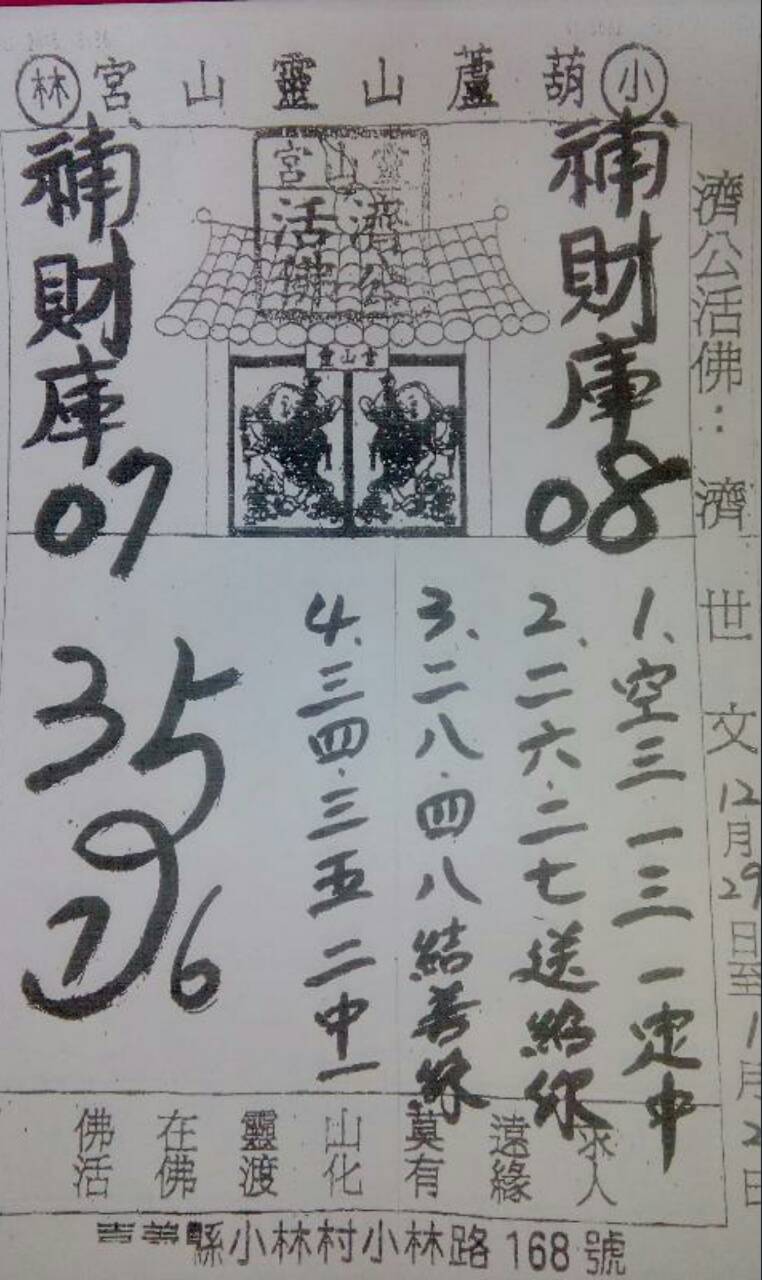 小葫蘆山靈山宮林
補財庫
08
補財庫
07
靈山宮
濟公活佛
靈山宮
濟公活佛：濟世文
12月29日至1月2日
1、空三一三一定中
2、二六·二七送給你
3、二八·四八結善緣
4、三四·三五二中一
35
7 6
求人
遠緣
莫有
山化
靈渡
在佛
佛活
嘉義縣小林村小林路168號